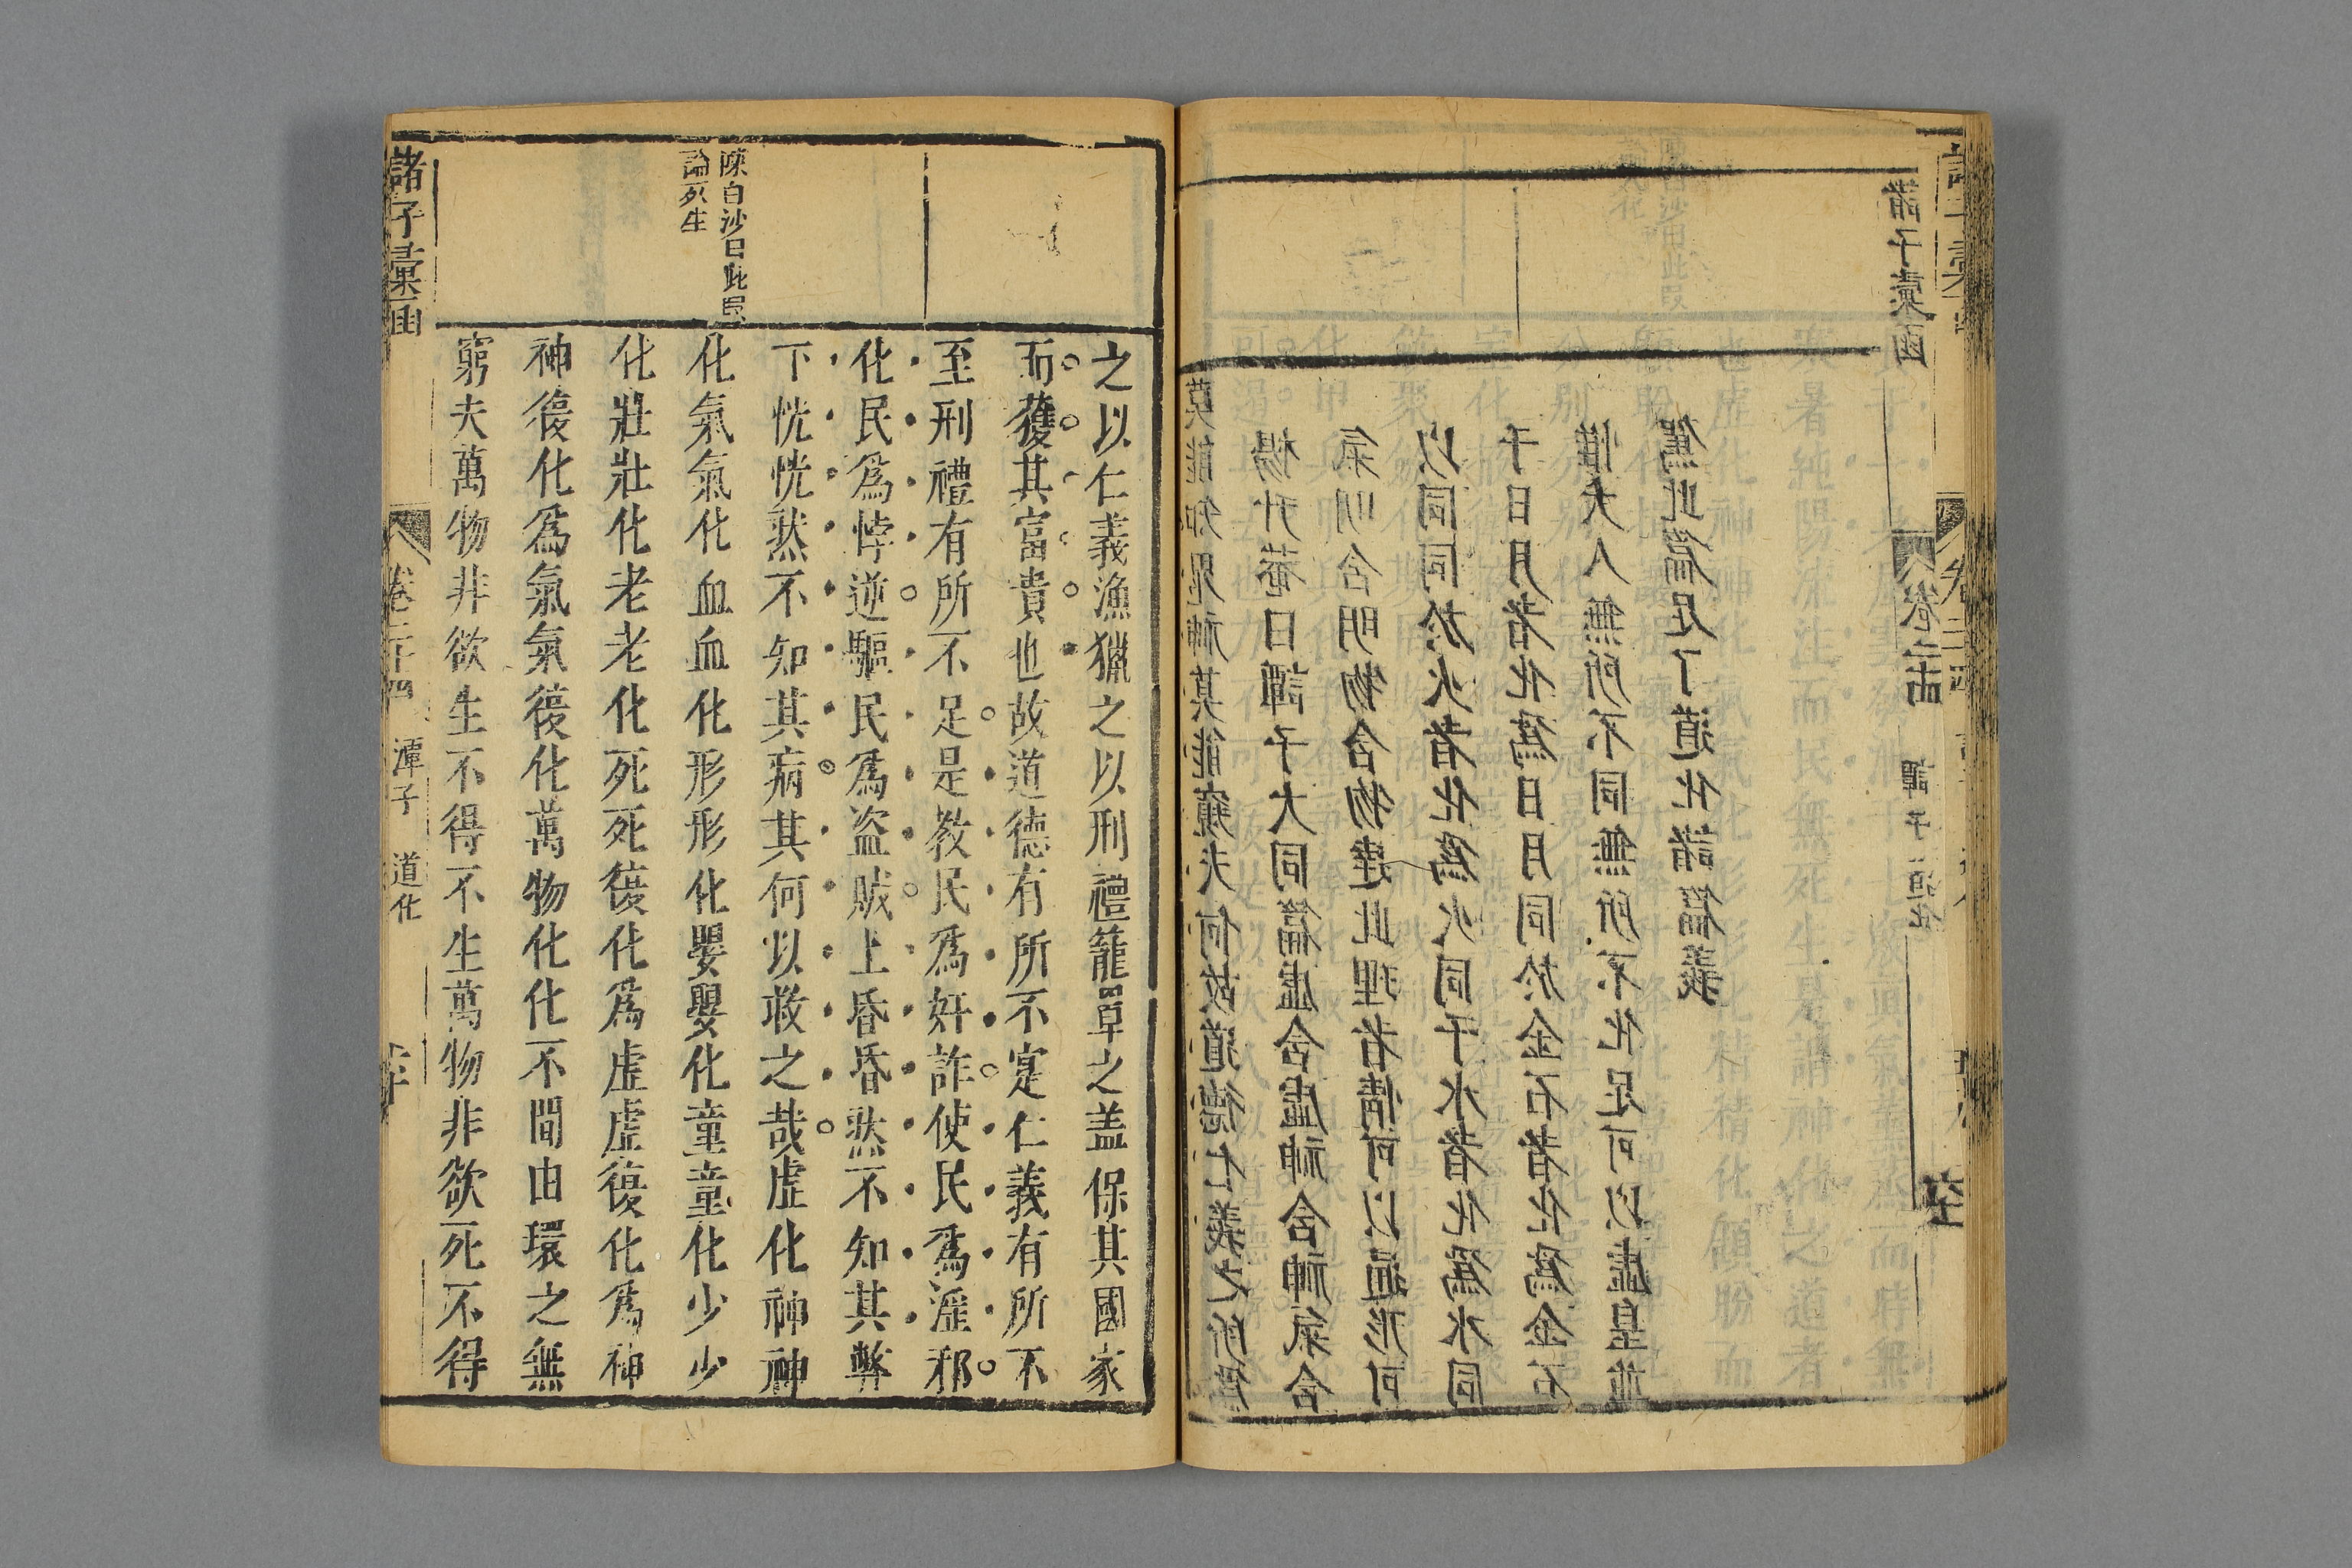 諸子彙函
卷二十四
譚子
道化
莫能知鬼神莫能窺夫何故道德仁義之所爲
楊升菴曰譚子大同篇虛含虛神含神氣含
氣明含明物含物達此理者情可以通形可
以同同於火者化爲火同于水者化爲水同
于日月者化爲日月同於金石者化爲金石
惟大人無所不同無所不化足可以虛皇並
駕此篇足了道化諸篇義
陳白沙曰此段
論死生
之以仁義漁獵之以刑禮籠罩之盖保其國家
而獲其富貴也故道德有所不寔仁義有所不
至刑禮有所不足是教民爲奸詐使民爲淫邪
化民爲悖逆驅民爲盗賊上昏昏然不知其弊
下恍恍然不知其病其何以救之哉虛化神神
化氣氣化血血化形形化嬰嬰化童童化少少
化壯壯化老老化死死復化爲虛虛復化爲神
神復化爲氣氣復化萬物化化不間由環之無
窮夫萬物非欲生不得不生萬物非欲死不得
諸子彙函
卷二十四
譚子
道化